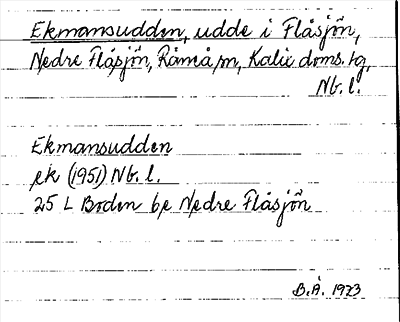 Ekmansudden, udde i Flåsjön,
Nedre Flåsjön, Råneå sn, Kalix doms. tg,
Nb. l.
Ekmansudden
ek (1951) Nb. l.
25 L Boden 6e Nedre Flåsjön
B.Å. 1973